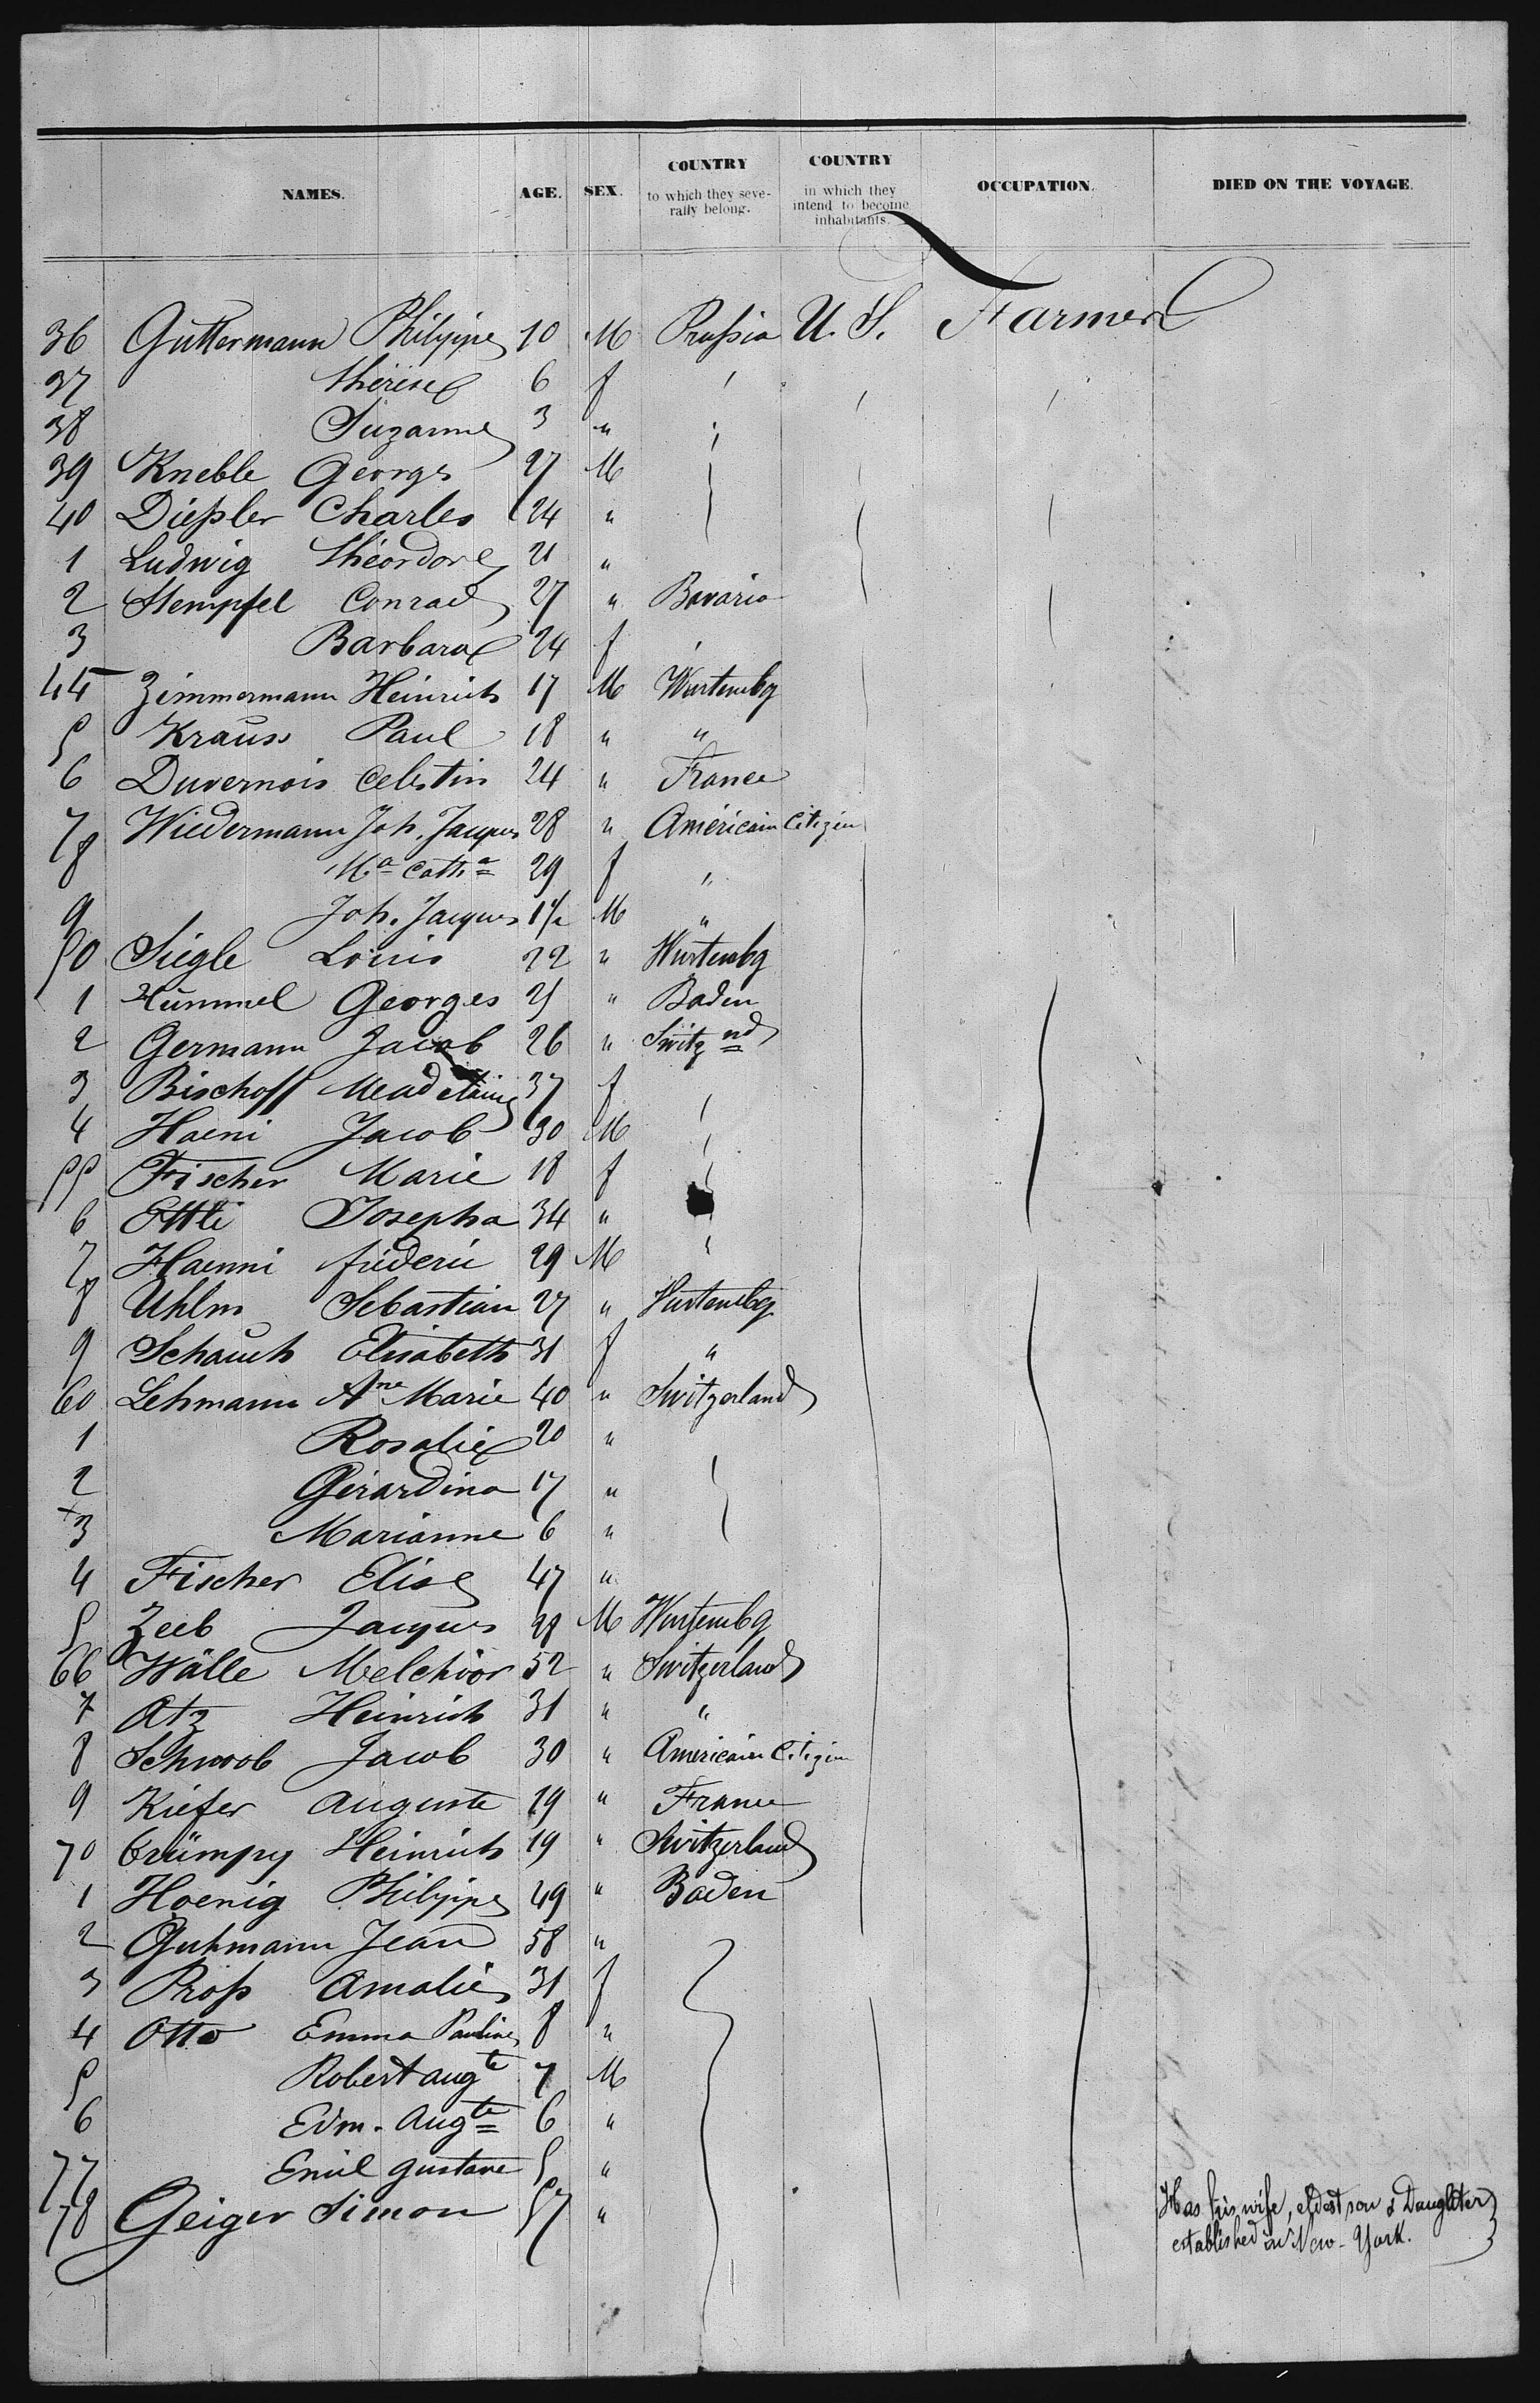 NAMES. AGE. SEX. COUNTRY to which they severally belong. COUNTRY in which they intend to become inhabitants. OCCUPATION. DIED ON THE VOYAGE.
36 Guttermann Philippe 10 M Prussia U. S. Farmer
37 Thérèse 6 f
38 Suzanne 3 "
39 Kneble Georges 27 M
40 Diessler Charles 24 "
1 Ludwig Théordore 21 "
2 Stempfel Conrad 27 " Bavaria
3 Barbara 24 f
44 Zimmermann Heinrich 17 M Wurtembg
5 Krauss Paul 18 " "
6 Duvernois Celestin 24 " France
7 Wiedermann Joh. Jacques 28 " Américain Citizen
8 Ma Catha 29 f "
9 Joh. Jacques 1½ M "
50 Siegle Louis 22 " Wurtembg
1 Hummel Georges 25 " Baden
2 Germann Jacob 26 " Switznd
3 Bischoff Madelaine 37 f
4 Haeni Jacob 30 M
55 Fischer Marie 18 f
6 Ettli Josepha 34 "
7 Haenni fréderic 29 M
8 Uhlm Sebastian 27 " Wurtembg
9 Schauch Elisabeth 31 f "
60 Lehmann Ane Marie 40 " Switzerland
1 Rosalie 20 "
2 Gérardina 17 "
3 Marianne 6 "
4 Fischer Elise 47 "
5 Zeeb Jacques 28 M Wurtembg
66 Wälle Melchior 52 " Switzerland
7 Atz Heinrich 31 " "
8 Schwob Jacob 30 " Americain Citizen
9 Kiefer Auguste 19 " France
70 Grümpy Heinrich 19 " Switzerland
1 Hoenig Philippe 49 " Baden
2 Guhmann Jean 58 "
3 Pross Amalie 31 f
4 Otto Emma Pauline 8 "
5 Robert augte 7 M
6 Edm. Augte 6 "
77 Emil Gustave 5 "
78 Geiger Simon 57 " Has his wife, eldest son & Daughter
established in New-York.